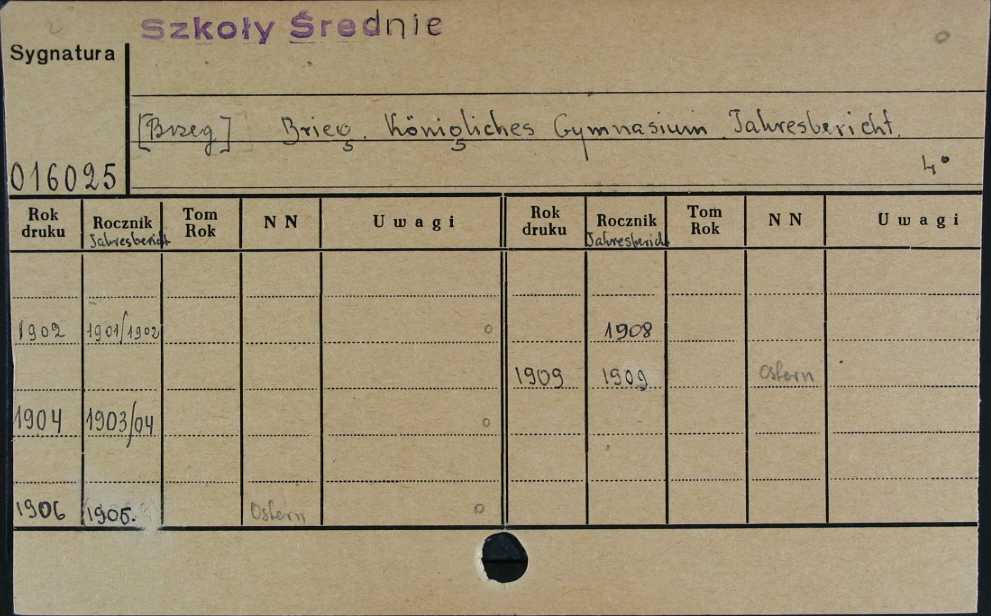 Szkoły Średnie
Sygnatura
[Brzeg] Brieg. Königliches Gymnasium. Jahresbericht.
4°
016025
Rok druku Rocznik Jahresbericht Tom Rok N N Uwagi Rok druku Rocznik Jahresbericht Tom Rok N N Uwagi
1902 1901/1902 1908
1909 1909 Ostern
1904 1903/04
1906 1906. Ostern